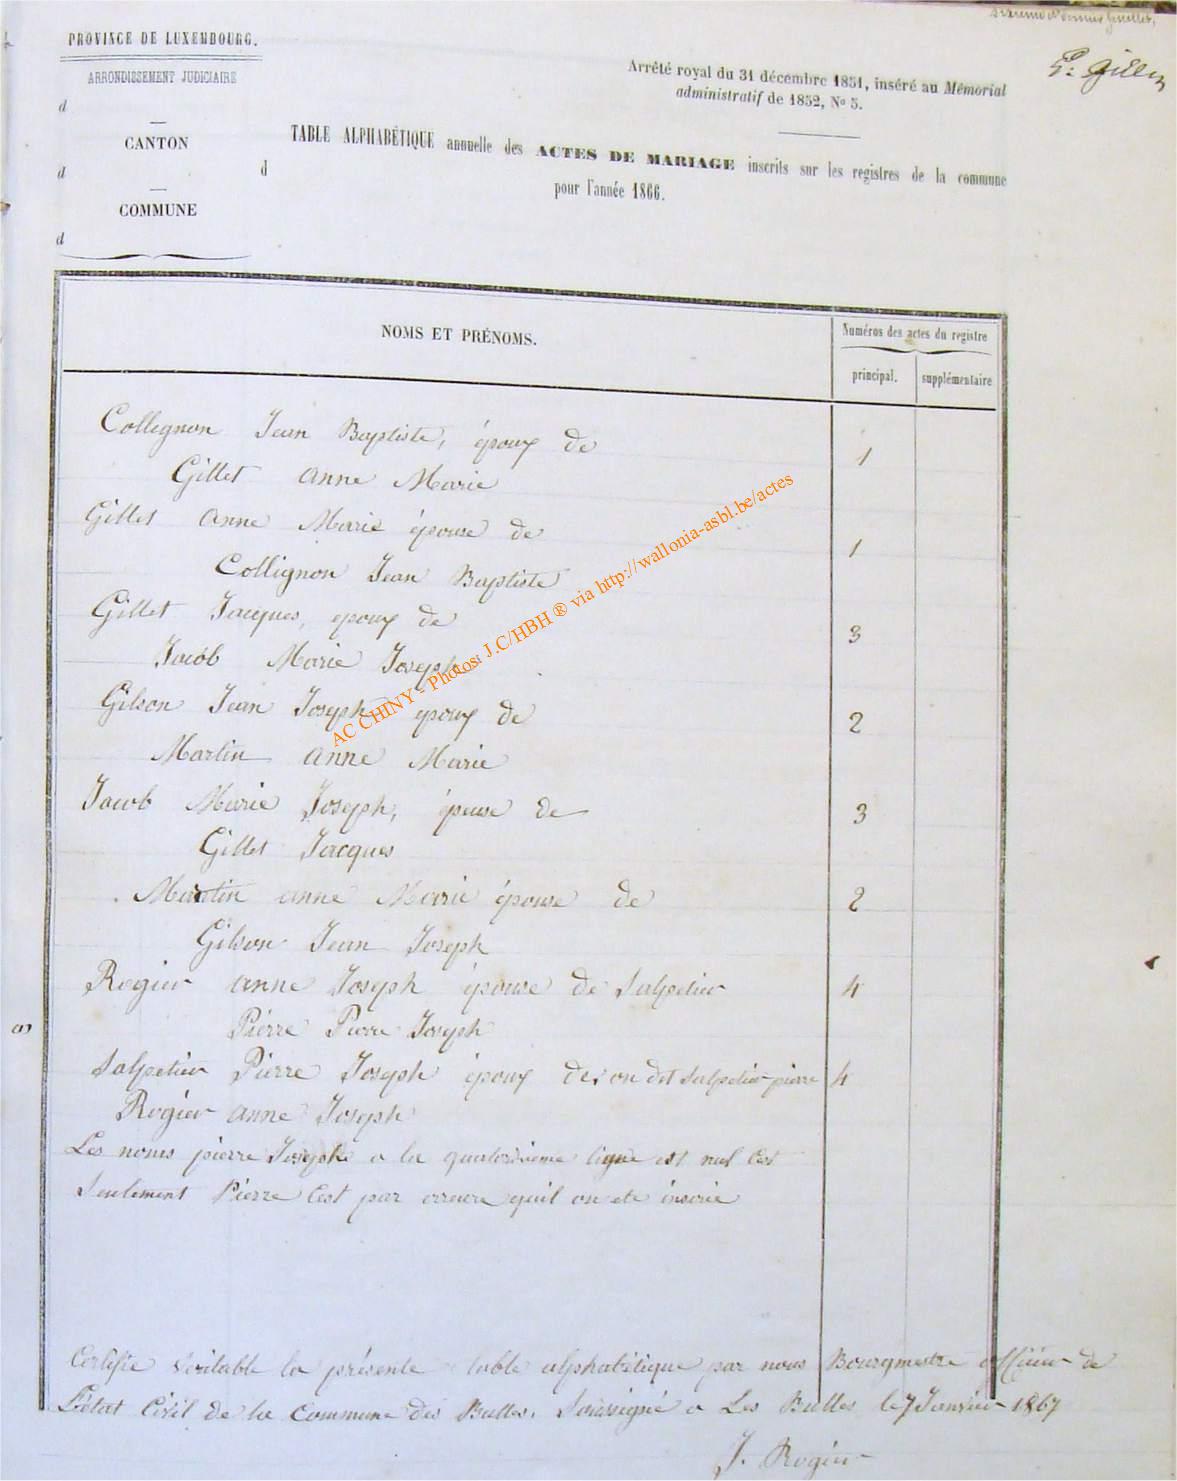 PROVINCE DE LUXEMBOURG.
ARRONDISSEMENT JUDICIAIRE
d
CANTON
d
COMMUNE
d
E. Gillet
Arrêté royal du 31 décembre 1851, inséré au Mémorial
administratif de 1852, No 5.
TABLE ALPHABÉTIQUE annuelle des ACTES DE MARIAGE inscrits sur les registres de la commune
d pour l'année 1866.
NOMS ET PRÉNOMS.
Numéros des actes du registre
principal. supplémentaire
Collignon Jean Baptiste, époux de 1
Gillet anne Marie
Gillet anne Marie épouse de 1
Collignon Jean Baptiste
Gillet Jacques, epoux de 3
Jacob Marie Joseph
Gilson Jean Joseph epoux de 2
Martin anne Marie
Jacob Marie Joseph, épouse de 3
Gillet Jacques
Martin anne Marie épouse de 2
Gilson Jean Joseph
Rogier anne Joseph épouse de Salpetier 4
Pierre Pierre Joseph
Salpetier Pierre Joseph époux de on dit Salpetier pierre 4
Rogier anne Joseph
Les noms pierre Joseph a la quatorzieme ligne est nul Cest
Seulement Pierre Cest par erreure quil on ete inscrie
Certifie Veritable la présente table alphabétique par nous Bourgmestre officier de
L'état Civil de la Commune des Bulles, Soussigné a Les Bulles le 7 Janvier 1867
J. Rogier
AC CHINY - Photos: J.C/HBH ® via http://wallonia-asbl.be/actes